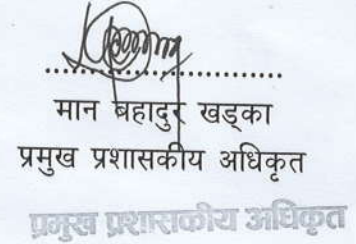 ....................................
मान बहादुर खड्का
प्रमुख प्रशासकीय अधिकृत
प्रमुख प्रशासकीय अधिकृत